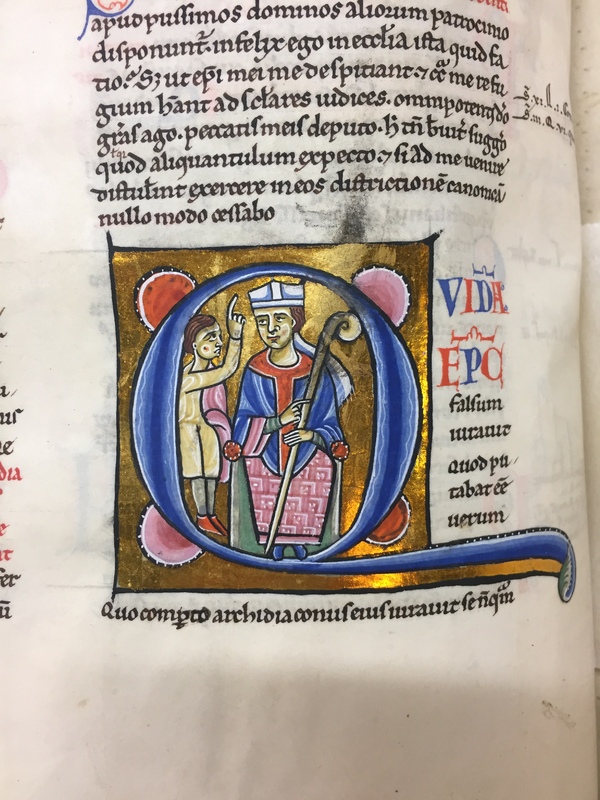 apud piissimos dominos aliorum patrocinio
disponunt. infelix ego in ecclia ista quid fa
tio. Sz ut epi mei me despitiant. ⁊ cͣ me refu
gium hant ad sclares iudices. omnipotenti do
gras ago. peccatis meis deputo. h tn buit suggo
quod aliquantulum expecto. ⁊ si ad me uenire
distulint exercere in eos districtionē canonicā
nullo modo cessabo
QVIDA
EPC
falsum
iurauit
quod pu
tabat eē
uerum
Quo compto archidiaconus eius iurauit se nqm